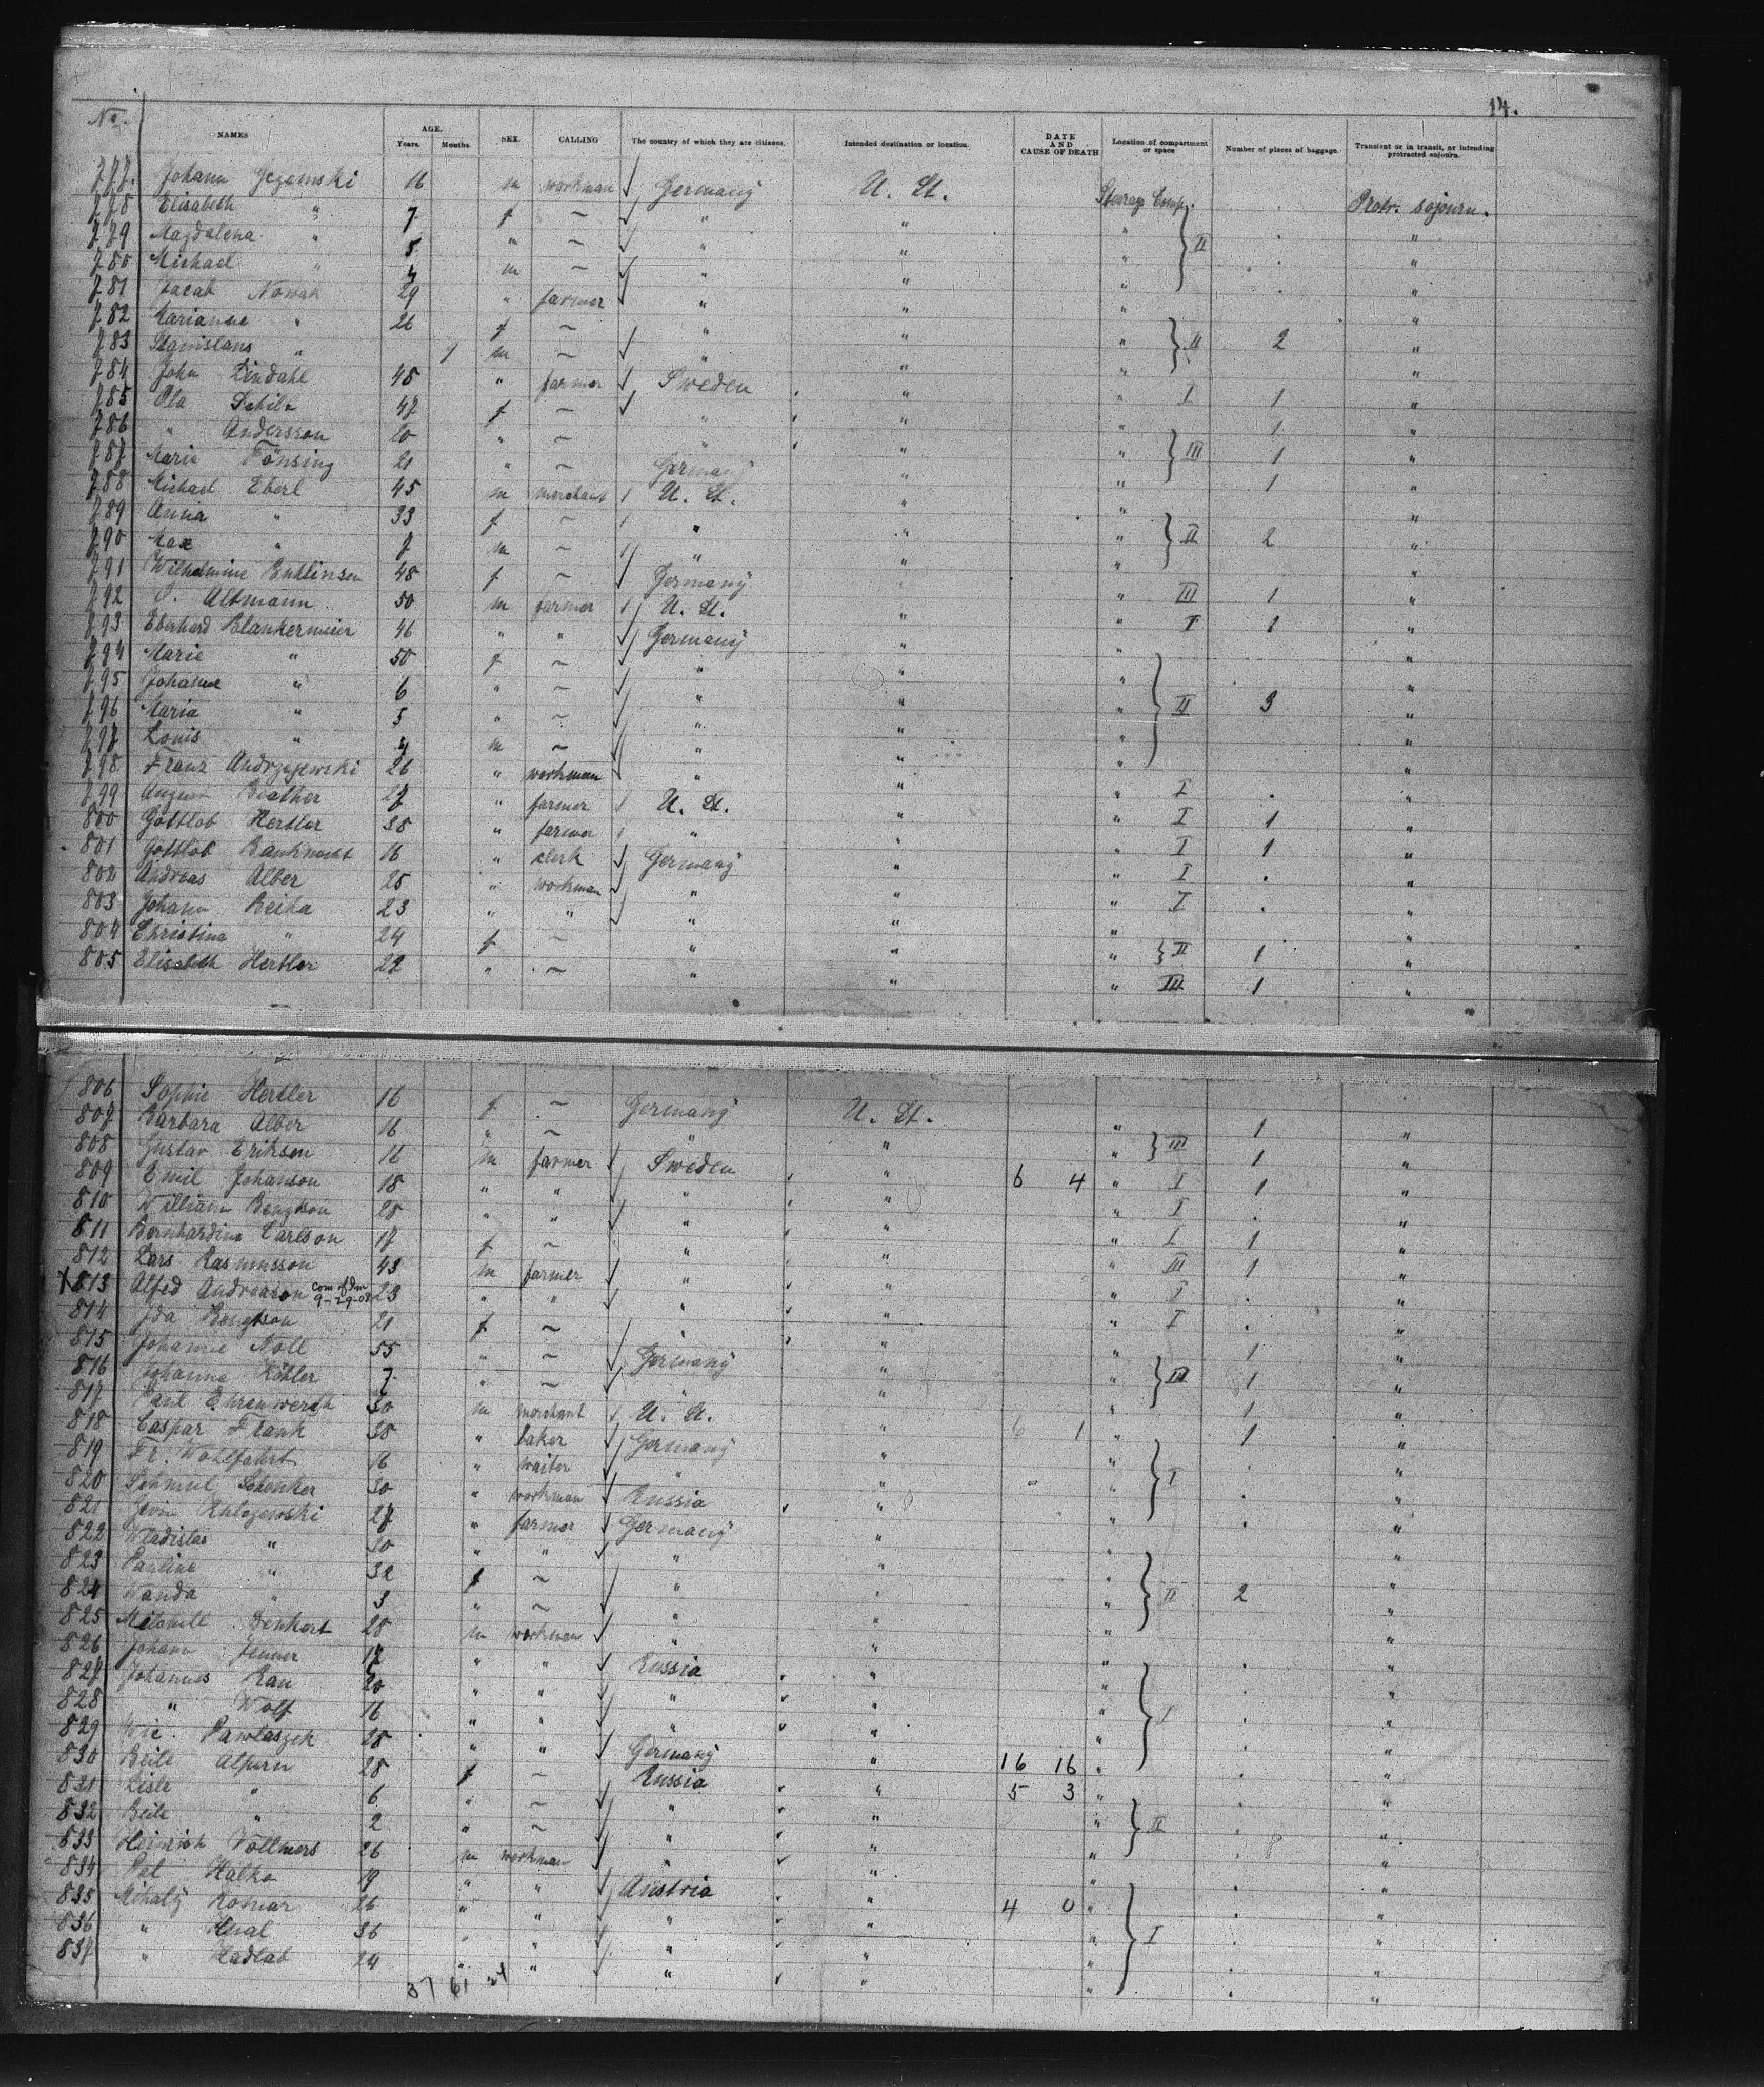 14.
No. NAMES AGE. Years. Months. SEX. CALLING The country of which they are citizens. Intended destination or location. DATE AND CAUSE OF DEATH Location of compartment or space Number of pieces of baggage. Transient or in transit, or intending protracted sojourn.
777. Johann 16 m workman Germany U. St. Steerage Comp. Protr. sojourn.
778 Elisabeth " 7 f — " " " "
779 Magdalena " 5 " — " " " II "
780 Michael " 4 m — " " " "
781 Jacob Nowak 29 " farmer " " " "
782 Marianne " 26 f — " " " II 2 "
783 Stanislaus " 9 m — " " " "
784 John Lindahl 48 " farmer Sweden " " I 1 "
785 Ola 47 f — " " " 1 "
786 " Andersson 20 " — " " " III 1 "
787 Marie Fönsing 21 " — Germany " " 1 "
788 Michael Eberl 45 m merchant U. St. " " "
789 Anna " 33 f — " " " II 2 "
790 Max " 7 m — " " " "
791 Wilhelmine 48 f — Germany " III 1 "
792 Altmann 50 m farmer U. St. " " I 1 "
793 Eberhard Blankermeier 46 " " Germany " " "
794 Marie " 50 f — " " " "
795 Johanne " 6 " — " " " II 3 "
796 Maria " 5 " — " " " "
797 Louis " 4 m — " " " "
798 Franz Andrzejewski 26 " workman " " " I . "
799 August 27 " farmer U. St. " " I 1 "
800 Gottlob Hertler 38 " farmer " " " I 1 "
801 Gottlob Banknecht 16 " clerk Germany " " I . "
802 Andreas Alber 25 " workman " " " I . "
803 Johann Beika 23 " " " " " "
804 Christina " 24 f — " " " II 1 "
805 Elisabeth Hertler 22 " — " " " III 1 "
806 Sophie Hertler 16 f — Germany U. St. " 1 "
807 Barbara Alber 16 " — " " " III 1 "
808 Gustav Erikson 16 m farmer Sweden " 6 4 " I 1 "
809 Emil Johanson 18 " " " " " I . "
810 William Bengtson 28 " " " " " I 1 "
811 Bernhardine Carlson 17 f — " " " III 1 "
812 Lars Rasmusson 43 m farmer " " " I . "
X 813 Alfed Andreason 9-29-08 23 " " " " " I . "
814 Ida Bengtson 21 f — " " " 1 "
815 Johanne Noll 55 " — Germany " " III 1 "
816 Johanna Köhler 7 " — " " " 1 "
817 Paul Ehrenwerth 30 m merchant U. St. " 6 1 " 1 "
818 Caspar Frank 38 " baker Germany " " . "
819 Fr. Wohlfahrt 16 " waiter " " " I . "
820 Schmul Schenker 30 " workman Russia " " . "
821 27 " farmer Germany " " "
822 Wladislas " 30 " " " " " "
823 Pauline " 32 f — " " " II 2 "
824 Wanda " 3 " — " " " "
825 Denkert 28 m workman " " " . "
826 Johann Jenner 17 " " Russia " " . "
827 Johannes Rau 20 " " " " " I . "
828 " Wolf 16 " " " " " . "
829 Vic. Pawlaszek 28 " " Germany " 16 16 " . "
830 Beile Alpern 28 f — Russia " 5 3 " . "
831 Liste " 6 " — " " " II . "
832 Beile " 2 " — " " " . "
833 Heinrich Vollmers 26 m workman " " " . "
834 Pal Halko 19 " " Austria " 4 0 " . "
835 Mihaly Komar 26 " " " " " I . "
836 " 36 " " " " " . "
837 " Hadlab 24 " " " " " . "
37 61 24